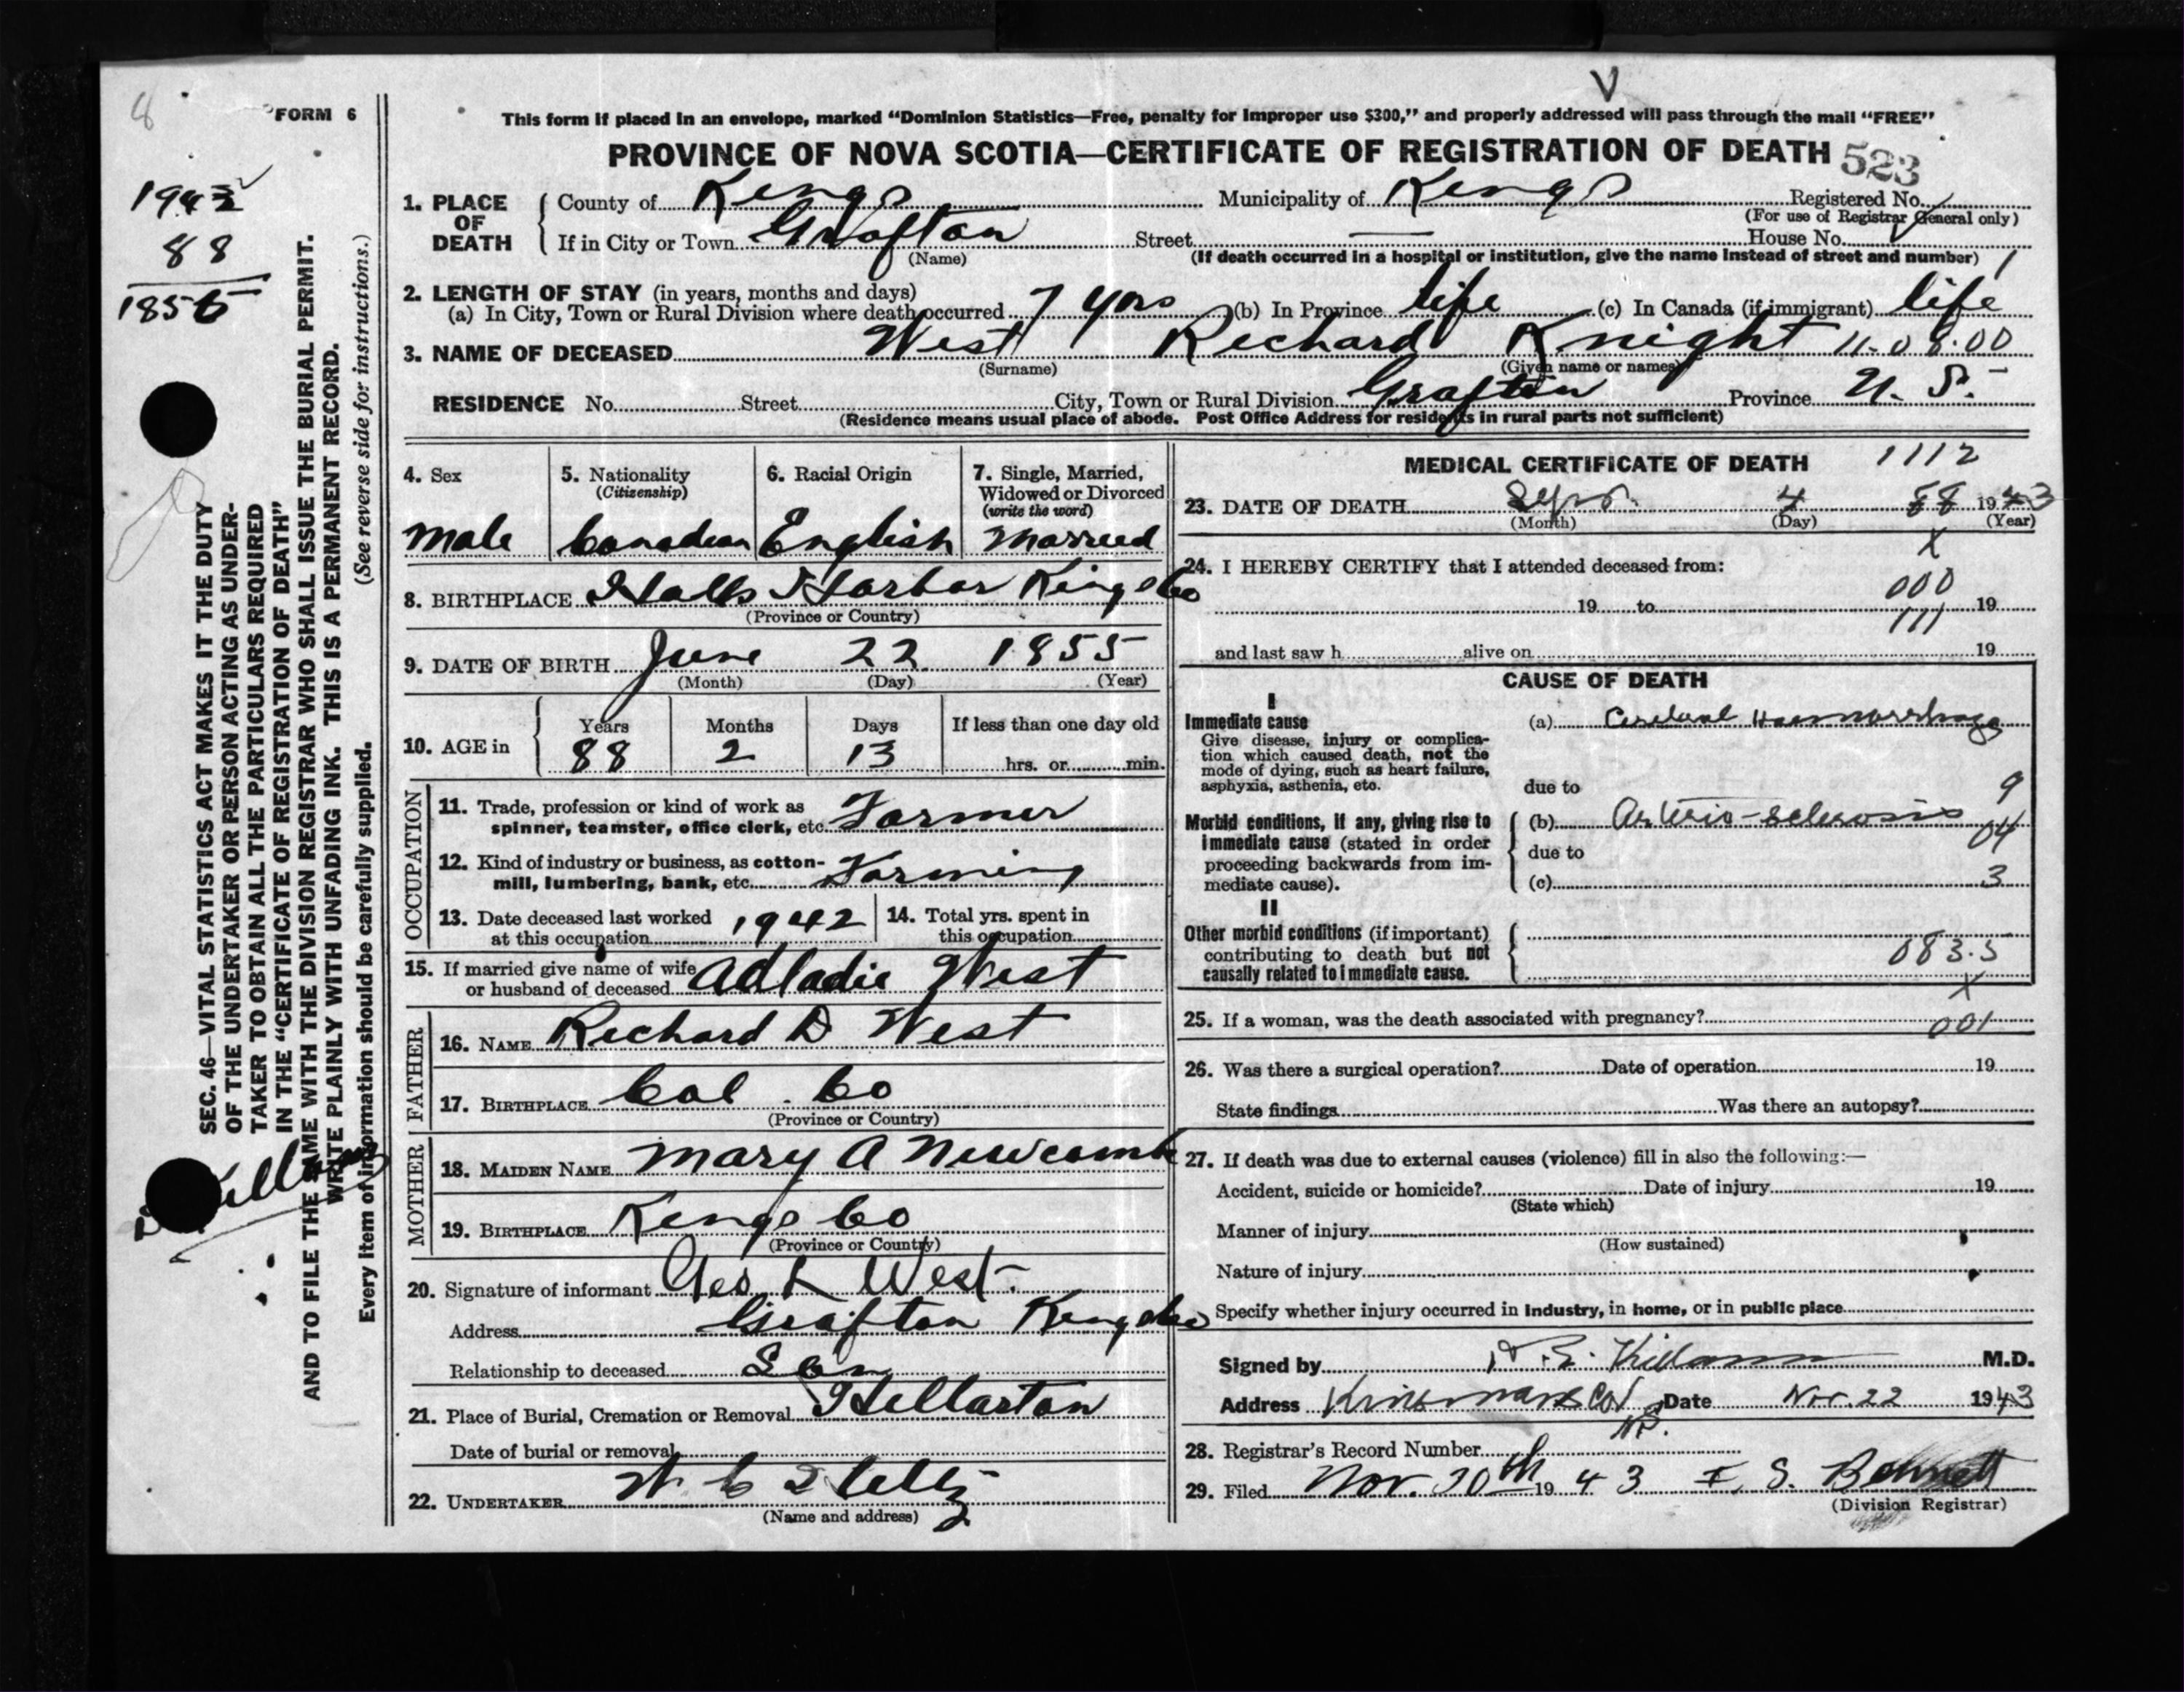 8
FORM 6
V
This form if placed in an envelope, marked “Dominion Statistics—Free, penalty for improper use $300,” and properly addressed will pass through the mail “FREE”
PROVINCE OF NOVA SCOTIA—CERTIFICATE OF REGISTRATION OF DEATH 523
1943
88
1855
SEC. 46—VITAL STATISTICS ACT MAKES IT THE DUTY
OF THE UNDERTAKER OR PERSON ACTING AS UNDER-
TAKER TO OBTAIN ALL THE PARTICULARS REQUIRED
IN THE “CERTIFICATE OF REGISTRATION OF DEATH”
AND TO FILE THE SAME WITH THE DIVISION REGISTRAR WHO SHALL ISSUE THE BURIAL PERMIT.
WRITE PLAINLY WITH UNFADING INK. THIS IS A PERMANENT RECORD.
Every item of information should be carefully supplied. (See reverse side for instructions.)
1. PLACE OF DEATH
County of Kings Municipality of Kings Registered No.
(For use of Registrar General only)
If in City or Town Grafton Street — House No.
(Name) (If death occurred in a hospital or institution, give the name instead of street and number) 1
2. LENGTH OF STAY (in years, months and days)
(a) In City, Town or Rural Division where death occurred 7 yrs (b) In Province life (c) In Canada (if immigrant) life
3. NAME OF DECEASED West Richard Knight 11.08.00
(Surname) (Given name or names)
RESIDENCE No. Street City, Town or Rural Division Grafton Province N. S.
(Residence means usual place of abode. Post Office Address for residents in rural parts not sufficient)
4. Sex Male
5. Nationality (Citizenship) Canadian
6. Racial Origin English
7. Single, Married, Widowed or Divorced (write the word) Married
8. BIRTHPLACE Halls Harbor Kings Co
(Province or Country)
9. DATE OF BIRTH June 22 1855
(Month) (Day) (Year)
10. AGE in Years 88 Months 2 Days 13 If less than one day old
hrs. or min.
OCCUPATION
11. Trade, profession or kind of work as
spinner, teamster, office clerk, etc. Farmer
12. Kind of industry or business, as cotton-
mill, lumbering, bank, etc. Farming
13. Date deceased last worked
at this occupation 1942
14. Total yrs. spent in
this occupation
15. If married give name of wife
or husband of deceased Adladie West
FATHER
16. NAME Richard D West
17. BIRTHPLACE Col. Co
(Province or Country)
MOTHER
18. MAIDEN NAME Mary A Newcomb
19. BIRTHPLACE Kings Co
(Province or Country)
20. Signature of informant Geo L West.
Address Grafton Kings Co
Relationship to deceased Son
21. Place of Burial, Cremation or Removal
Date of burial or removal
22. UNDERTAKER
(Name and address)
MEDICAL CERTIFICATE OF DEATH 1112
23. DATE OF DEATH Sept. 4 88 1943
(Month) (Day) (Year)
X
24. I HEREBY CERTIFY that I attended deceased from:
000
19 to 19
111
and last saw h alive on 19
CAUSE OF DEATH
I
Immediate cause
Give disease, injury or complica-
tion which caused death, not the
mode of dying, such as heart failure,
asphyxia, asthenia, etc.
(a) Cerebral Haemorrhage
due to 9
Morbid conditions, if any, giving rise to
immediate cause (stated in order
proceeding backwards from im-
mediate cause).
(b) Arterio-sclerosis 04
due to
(c) 3
II
Other morbid conditions (if important)
contributing to death but not
causally related to immediate cause.
083.5
X
25. If a woman, was the death associated with pregnancy?
001
26. Was there a surgical operation? Date of operation 19
State findings Was there an autopsy?
27. If death was due to external causes (violence) fill in also the following:—
Accident, suicide or homicide? Date of injury 19
(State which)
Manner of injury
(How sustained)
Nature of injury
Specify whether injury occurred in industry, in home, or in public place
Signed by M.D.
Address Date Nov. 22 1943
N.S.
28. Registrar's Record Number
29. Filed Nov. 30th 1943 S. Bennett
(Division Registrar)